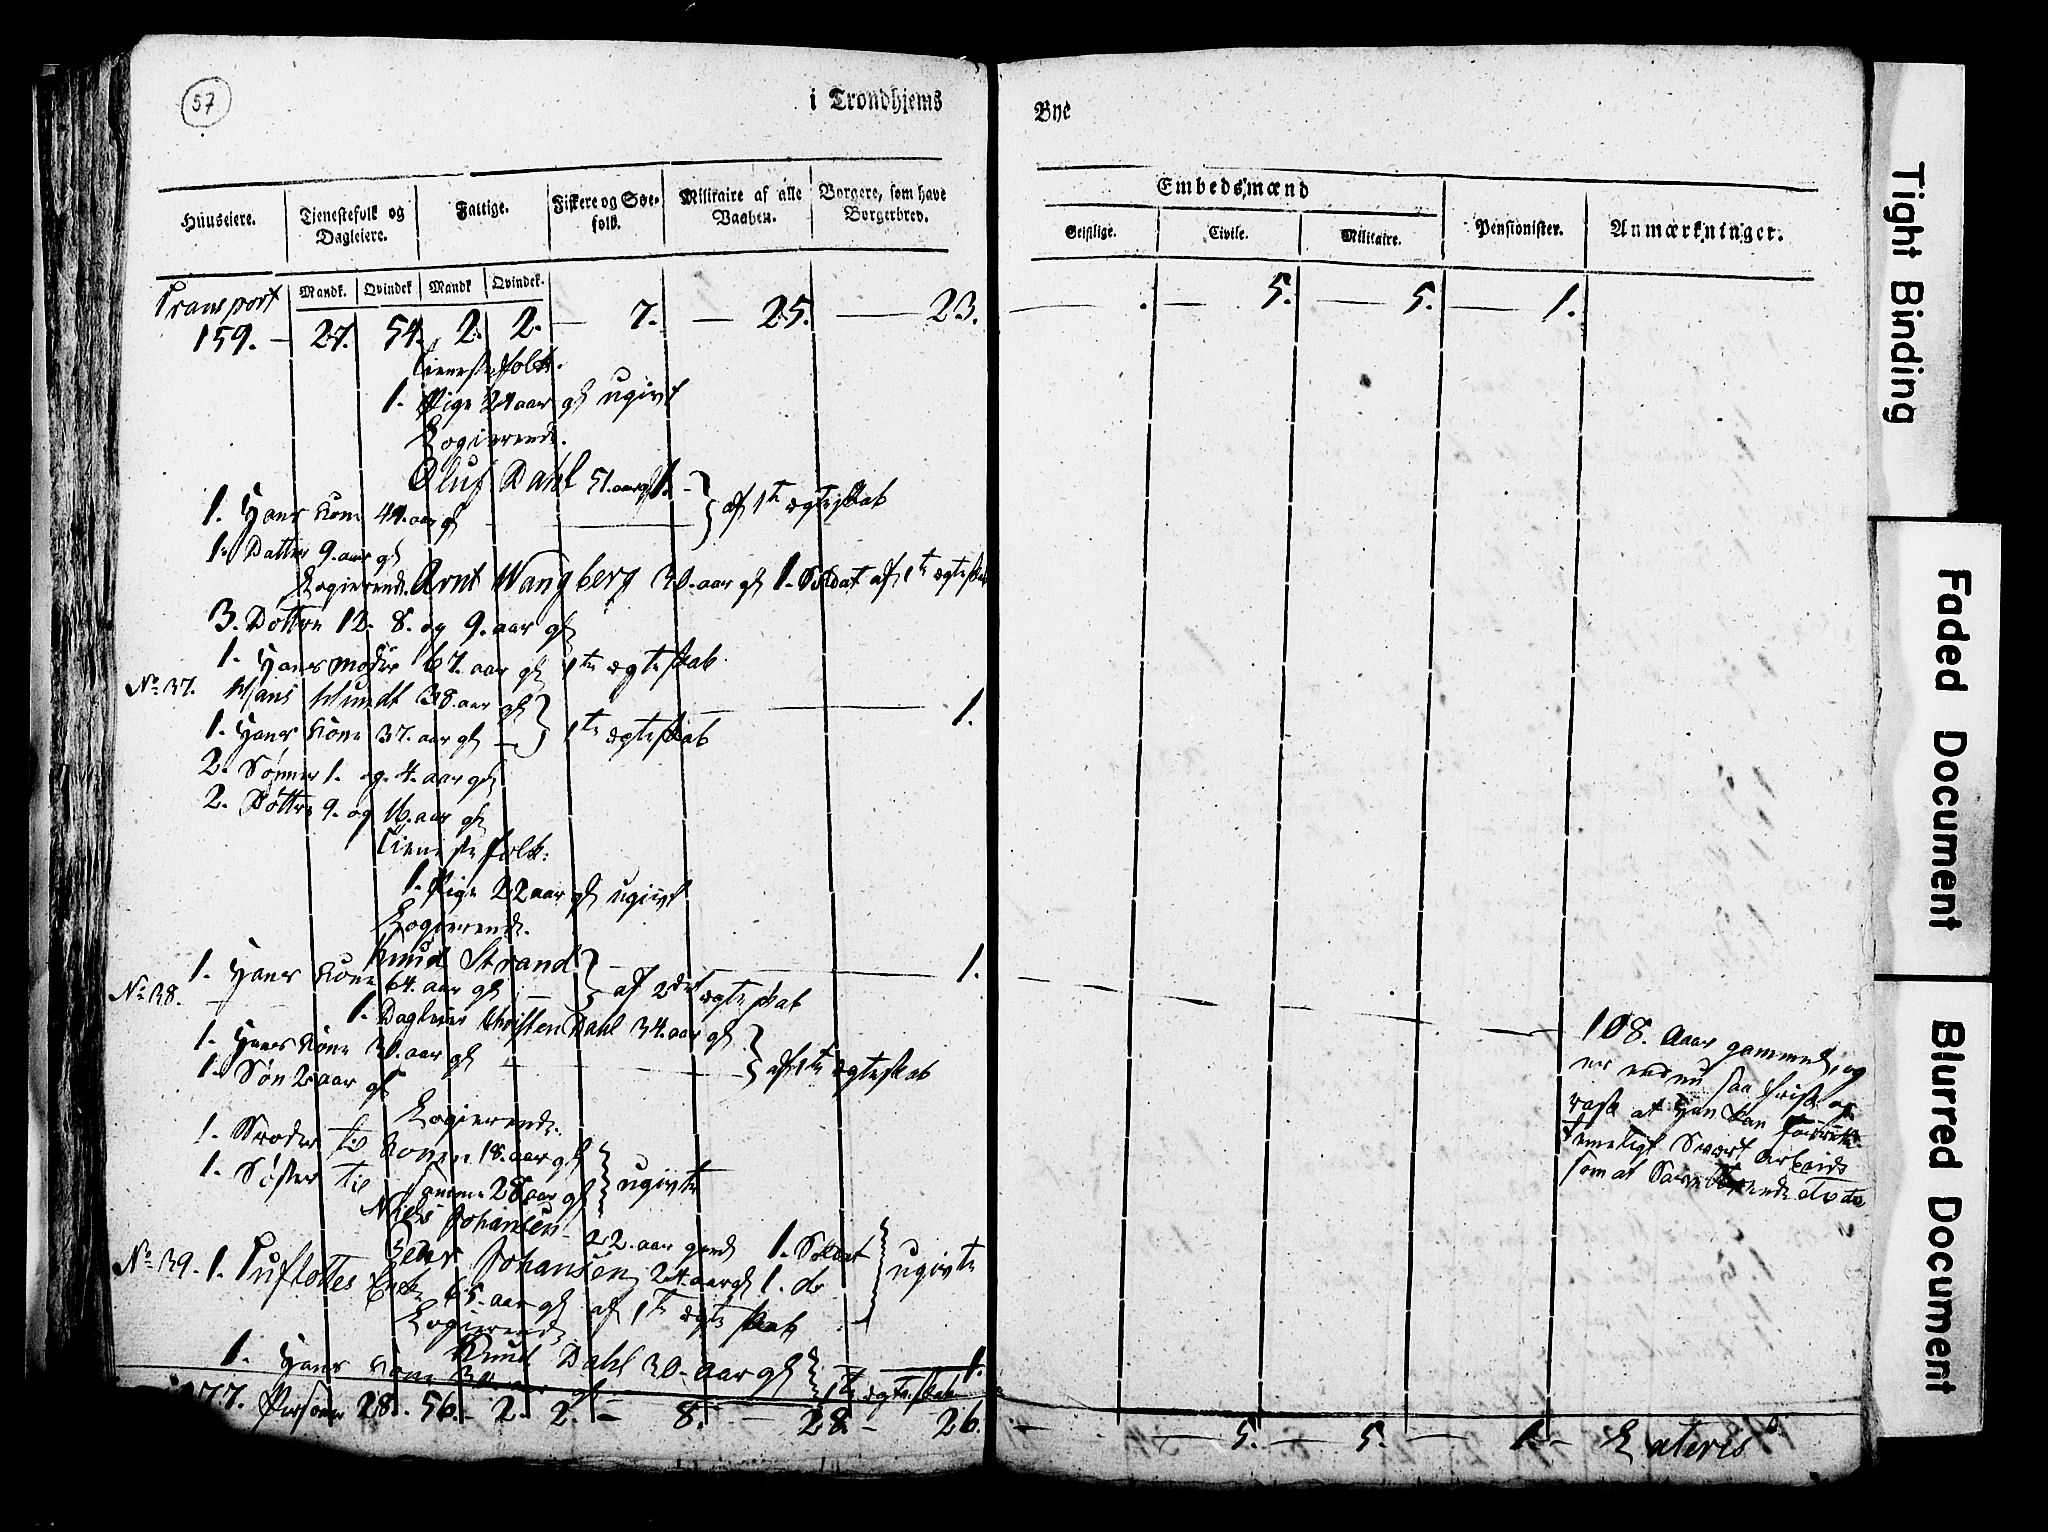 57
i Trondhjems
Bye
Huuseiere. Tjenestefolk og Dagleiere. Fattige. Fiskere og Søe-folk. Militaire af alle Vaaben. Borgere, som have Borgerbrev.
Embedsmænd
Geistlige. Civile. Militaire. Pensionister. Anmærkninger.
Mandk. Qvindek Mandk Qvindek.
Transport
159. — 27. 54. 2. 2. — 7. — 25. — 23. — . — 5. — 5. — 1.
Tienestefolk.
1. Pige 24 aar gl ugivt
Logierende.
Oluf Dahl 51. aar gl 1. —
1. Hans Kone 44. aar gl — } af 1te ægteskab
1. Datter 9. aar gl
Logierende. Arnt Wangberg 30. aar gl 1. Soldat af 1te ægteskab
3. Dottre 12. 8. og 9. aar gl
1. Hans moder 67. aar gl 1te ægteskab
No. 37. Hans Mundt 38. aar gl — 1.
1. Hans Kone 37. aar gl — } 1te ægteskab
2. Sønner 1. og 4. aar gl
2. Døttre 9. og 16. aar gl
Tieneste folk:
1. Pige 22 aar gl ugivt
Logierende.
Knud Strand — 1.
1. Hans Kone 64. aar gl } af 2det ægteskab
No. 38.
1. Dagleier Christen Dahl 34. aar gl
1. Hans Kone 30. aar gl — } af 1te ægteskab
1. Søn 2 aar gl
Logierende.
1. Broder til Konen 18. aar gl
1. Søster til Samme 28 aar gl } ugivte
Niels Johansen 22. aar gml 1. Soldat
Peder Johansen 24. aar gl 1. do } ugivte
No. 39. 1. Tuflottes Enke 65. aar gl af 1te ægteskab
Logierende
Knud Dahl 30. aar gl — 1.
1. Hans Kone 30 aar gl } 1te ægteskab
177. Personer 28. 56. — 2. 2. — 8. — 28. — 26. — 5. — 5. — 1. — Lateris
108. Aar gammel, og
er endnu saa frisk og
rask at Han kan forrette
temeligt Svært arbeide
som at Sauge
Tight Binding
Faded Document
Blurred Document